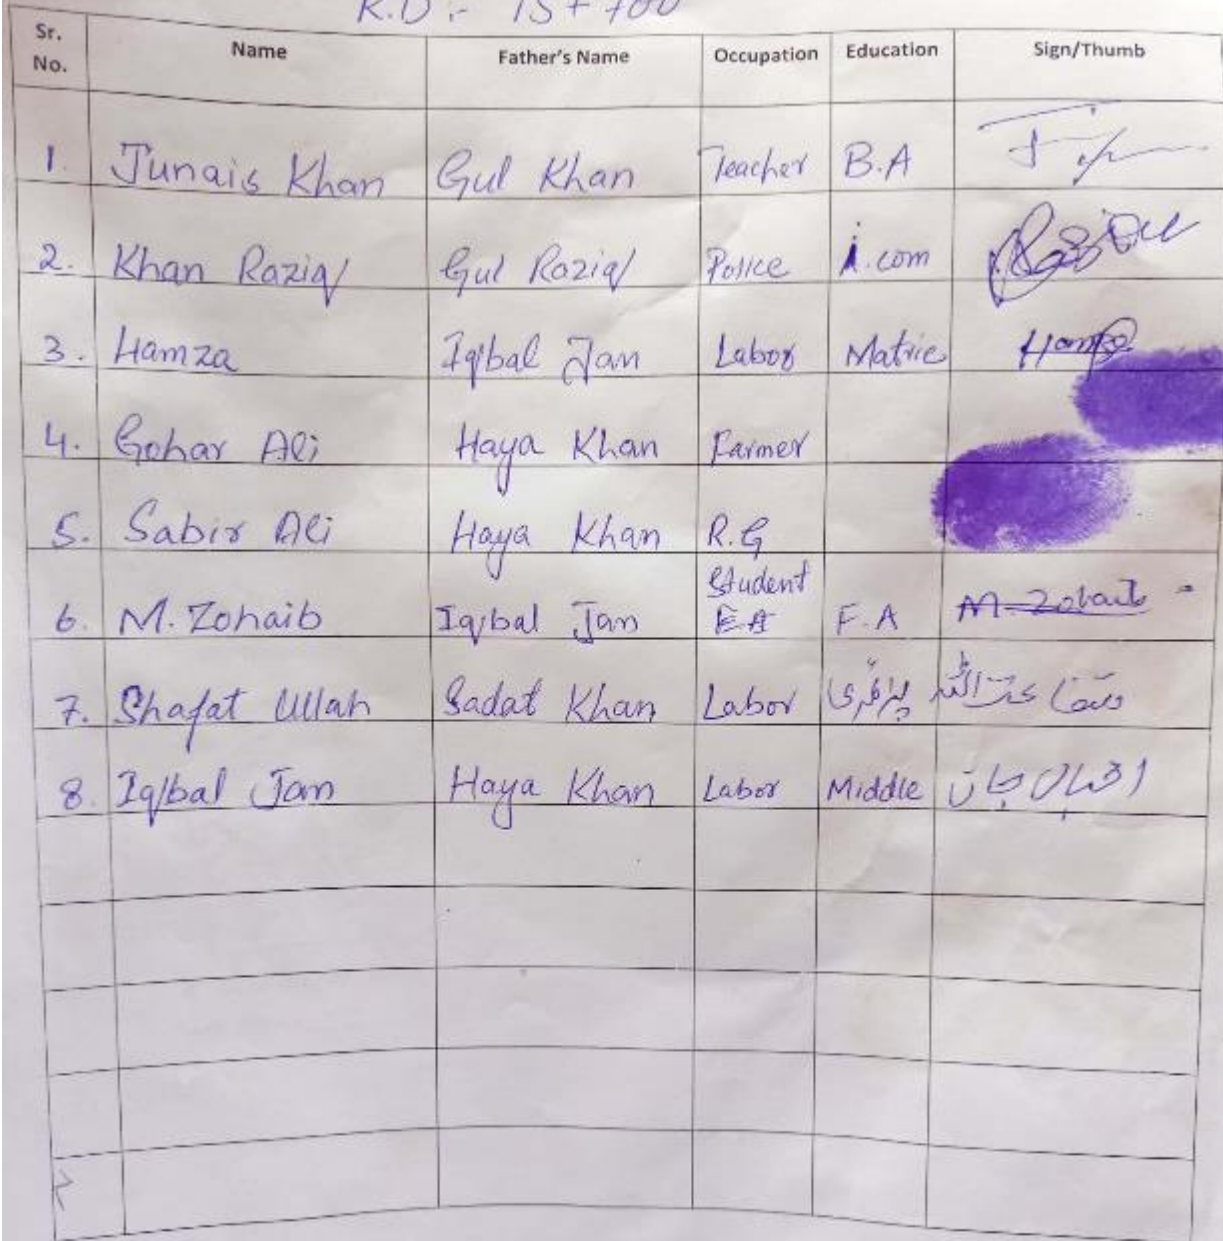 R.D :- 15+700
Sr. No. Name Father's Name Occupation Education Sign/Thumb
1. Junais Khan Gul Khan Teacher B.A
2. Khan Raziq Gul Raziq Police i.com
3. Hamza Iqbal Jan Labor Matric Hamza
4. Gohar Ali Haya Khan Farmer
5. Sabir Ali Haya Khan R.G
6. M. Zohaib Iqbal Jan Student F.A M. Zohaib
7. Shafat Ullah Sadat Khan Labor پرائمری
8. Iqbal Jan Haya Khan Labor Middle اقبال جان